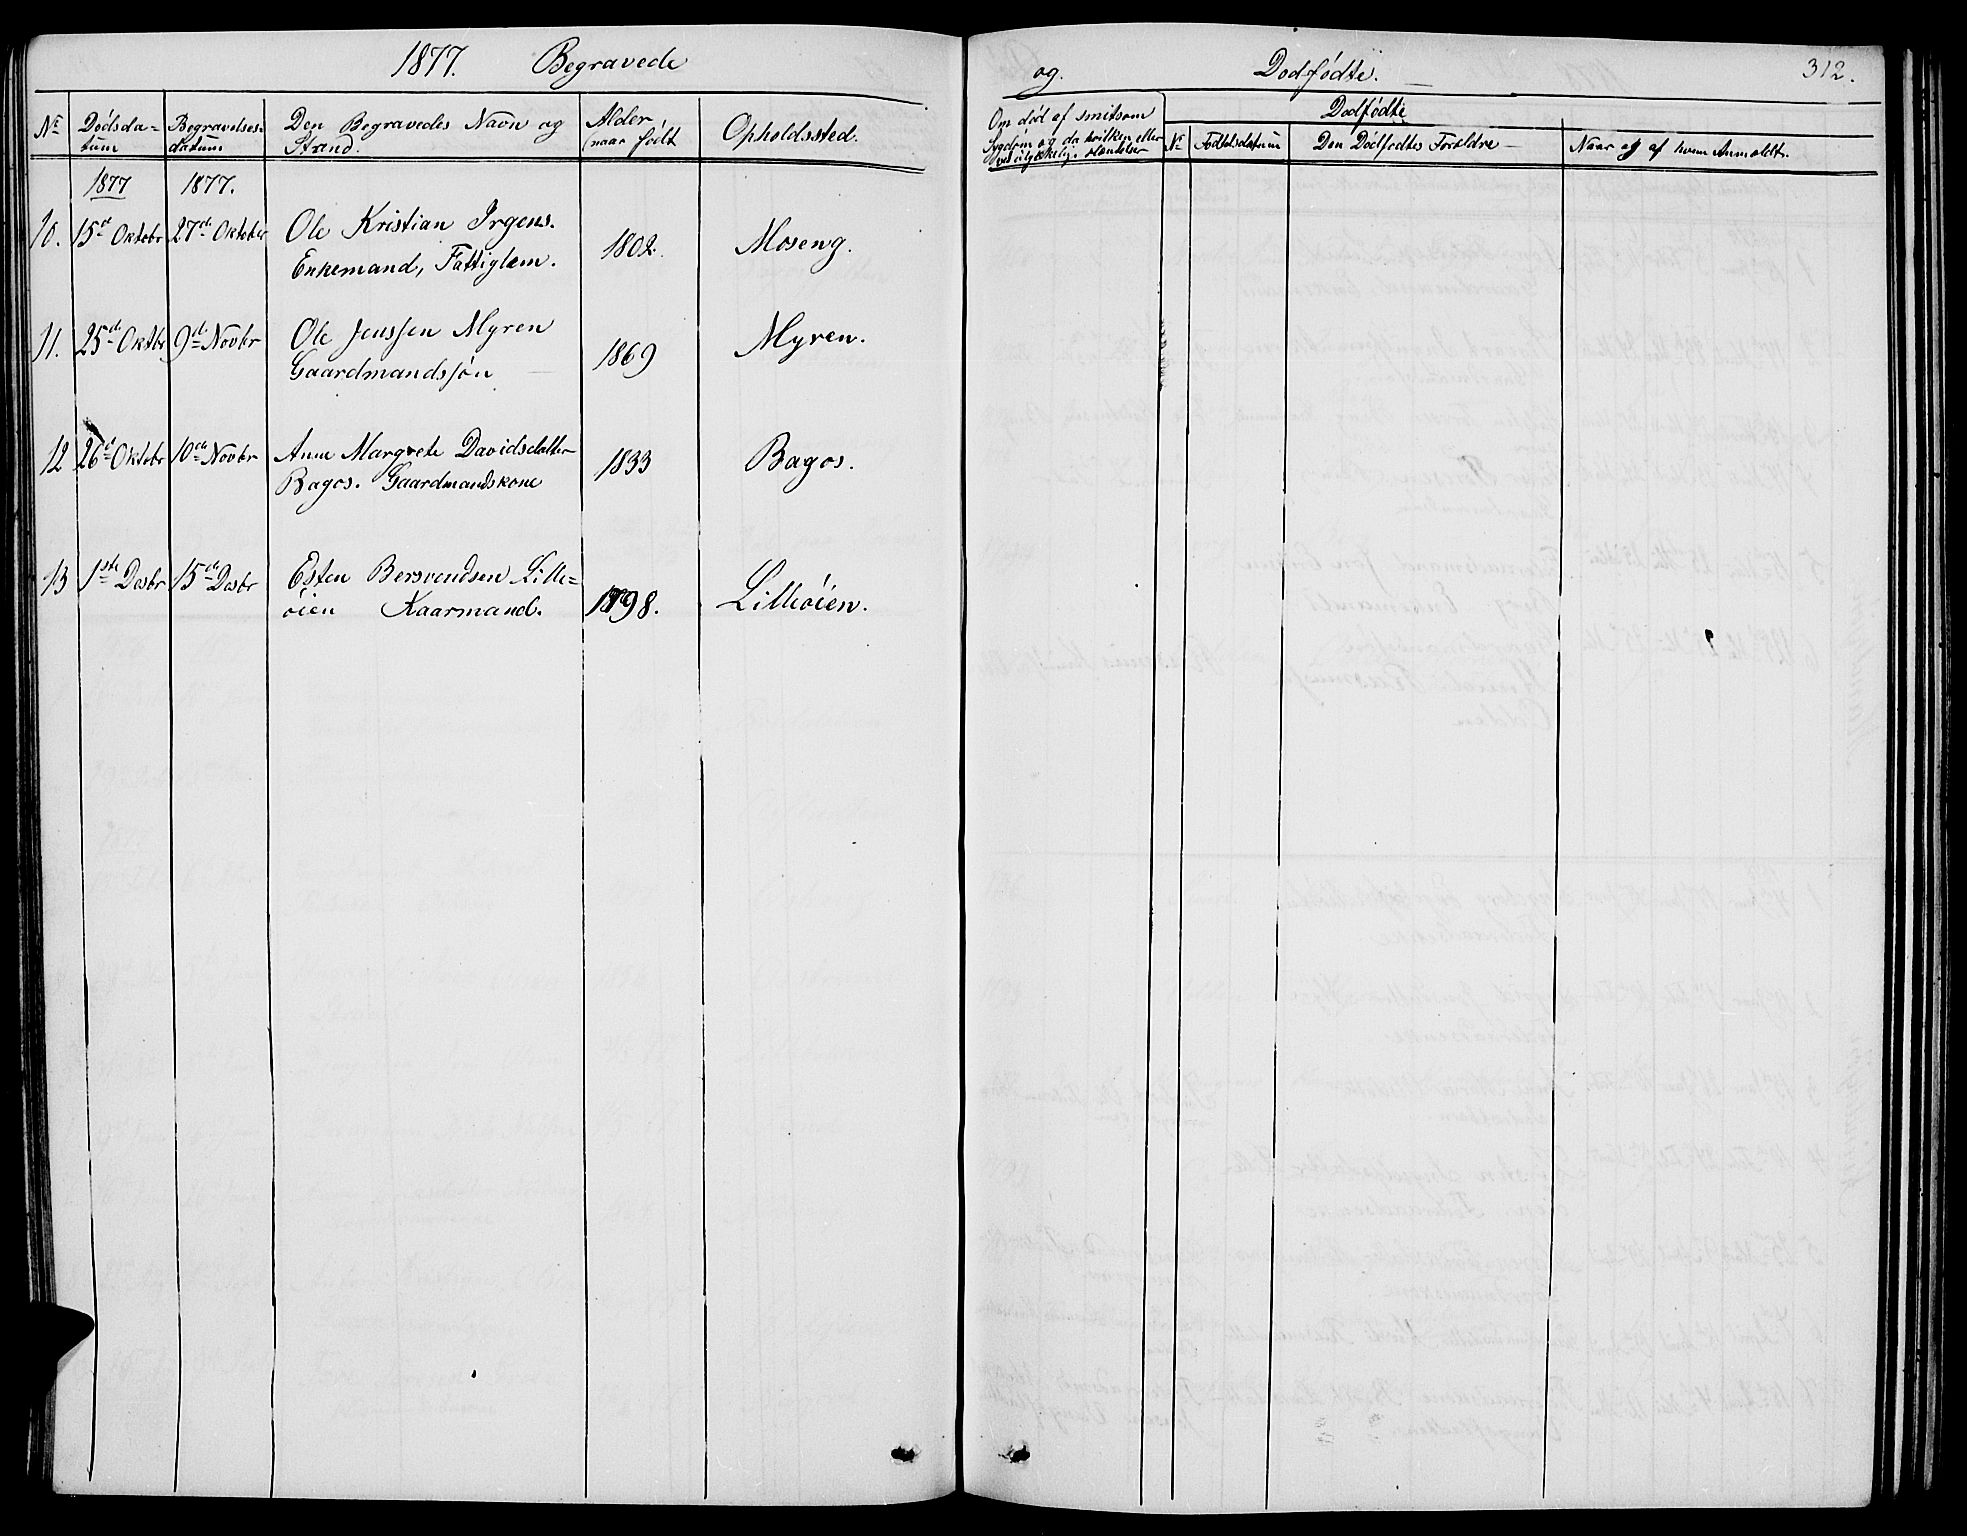 1877. Begravede
og. Dødfødte. 312.
No Dødsda= Begravelses= Den Begravedes Navn og Alder Opholdssted.
tum datum Stand. (naar født
Om død af smitsom
Sygdom og da hvilken eller
ved ulykkelig. Hændelser
Dødfødte
No Fødselsdatum Den Dødfødtes Forældre Naar og af hvem Anmeldt.
1877 1877.
10. 15de Oktobr 27de Oktober Ole Kristian Irgens. 1802. Moseng.
Enkemand, Fattiglem.
11. 25de Oktbr 9de Novbr Ole Jenssen Myren 1869 Myren.
Gaardmandssøn
12 26de Oktobr 10de Novbr Anne Margrete Davidsdatter 1833 Bagøs.
Bagøs. Gaardmandskone
13 1ste Desbr 15de Desbr Esten Bersvendsen Lille= 1798. Lilleøien.
øien Kaarmand.